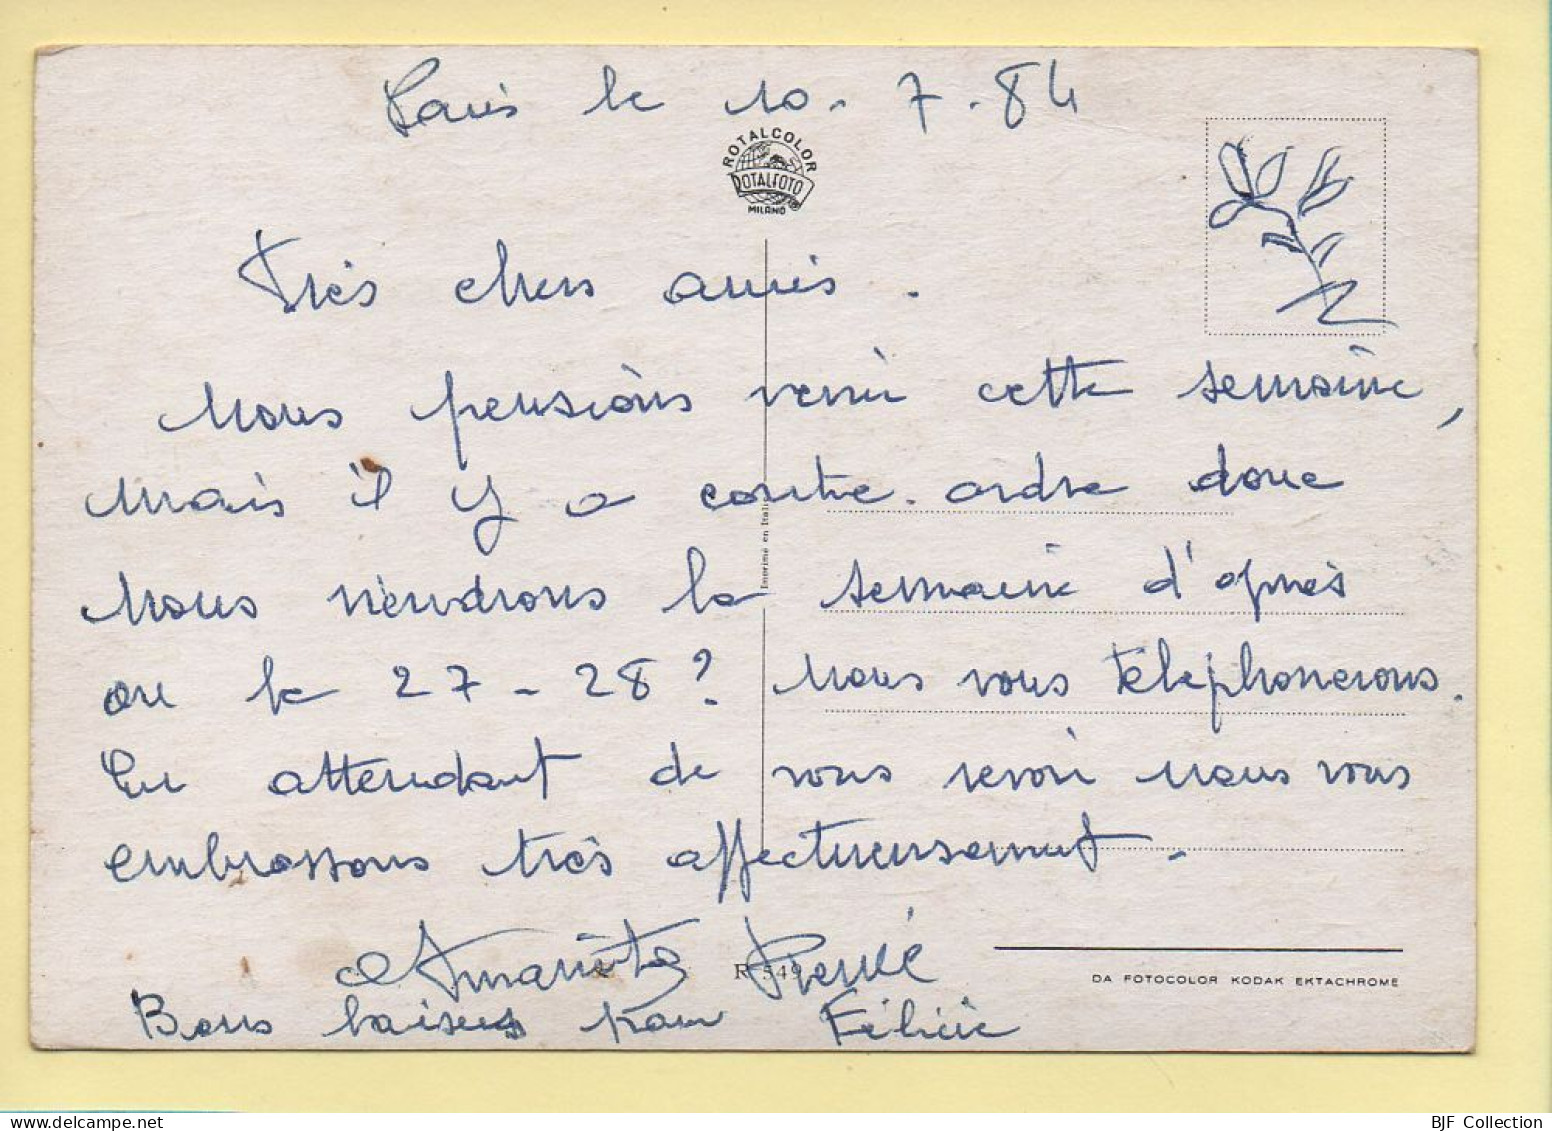 Paris le 10-7-84
ROTALCOLOR
ROTALFOTO
MILANO
Très chers amis.
Nous pensions venir cette semaine,
mais il y a contre-ordre donc
Imprimé en Italie
nous viendrons la semaine d'après
ou le 27-28? nous vous téléphonerons.
En attendant de vous revoir nous vous
embrassons très affectueusement.
R 549
DA FOTOCOLOR KODAK EKTACHROME
Bons baisers pour Félicie
BJF Collection